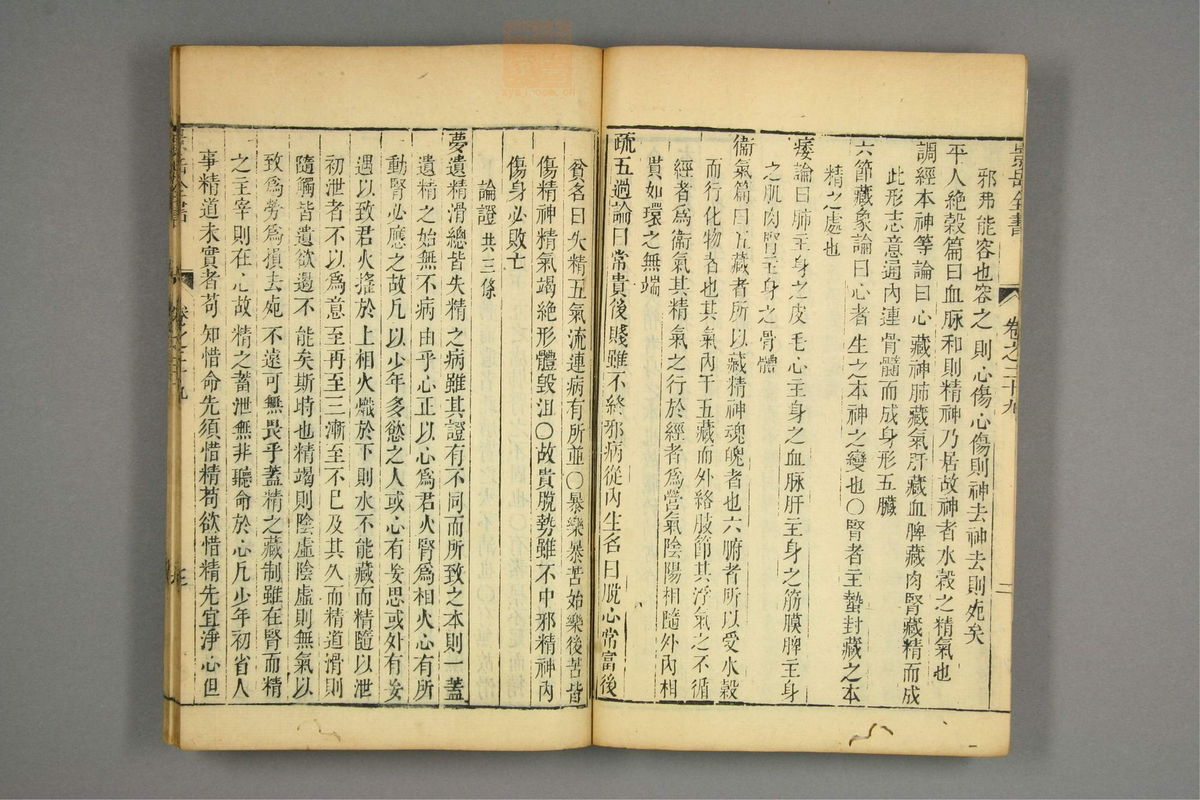 景岳全書 卷之二十九 二
邪弗能容也容之則心傷心傷則神去神去則死矣
平人絕穀篇曰血脉和則精神乃居故神者水穀之精氣也
調經本神等論曰心藏神肺藏氣肝藏血脾藏肉腎藏精而成
此形志意通內連骨髓而成身形五臟
六節藏象論曰心者生之本神之變也〇腎者主蟄封藏之本
精之處也
痿論曰肺主身之皮毛心主身之血脉肝主身之筋膜脾主身
之肌肉腎主身之骨髓
衞氣篇曰五藏者所以藏精神魂魄者也六腑者所以受水穀
而行化物者也其氣內干五藏而外絡肢節其浮氣之不循
經者爲衞氣其精氣之行於經者爲營氣陰陽相隨外內相
貫如環之無端
疏五過論曰常貴後賤雖不終邪病從內生名曰脫心常富後
貧名曰失精五氣流連病有所並〇暴樂暴苦始樂後苦皆
傷精神精氣竭絕形體毀沮〇故貴脫勢雖不中邪精神內
傷身必敗亡
論證共三條
夢遺精滑總皆失精之病雖其證有不同而所致之本則一蓋
遺精之始無不病由乎心正以心爲君火腎爲相火心有所
動腎必應之故凡以少年多慾之人或心有妄思或外有妄
遇以致君火搖於上相火熾於下則水不能藏而精隨以泄
初泄者不以爲意至再至三漸至不已及其久而精道滑則
隨觸皆遺欲遏不能矣斯時也精竭則陰虛陰虛則無氣以
致爲勞爲損去死不遠可無畏乎蓋精之藏制雖在腎而精
之主宰則在心故精之蓄泄無非聽命於心凡少年初省人
事精道未實者苟知惜命先須惜精苟欲惜精先宜淨心但
景岳全書 卷之二十九 三